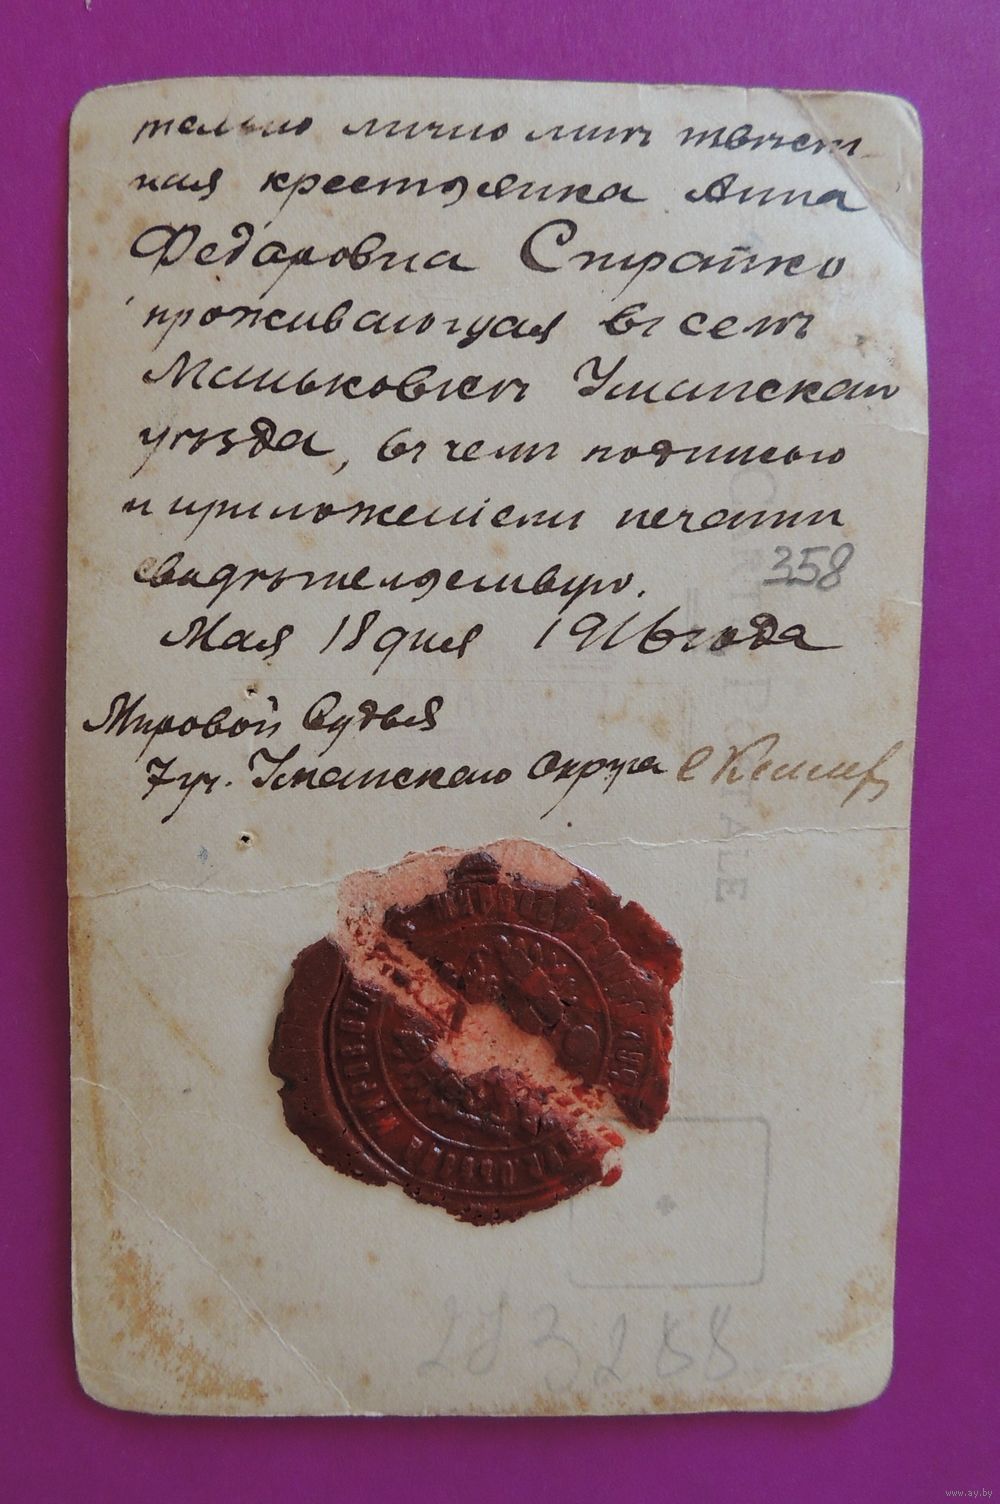 тельно лично мнѣ извѣст-
ная крестьянка Анна
Федоровна Стратко
проживающая въ селѣ
Маньковкѣ Уманскаго
уѣзда, въ чемъ подписью
и приложеніемъ печати
свидѣтельствую.
Мая 18 дня 1916 года
358
Мировой Судья
7 уч. Уманскаго Округа
CARTE POSTALE
273288
www.ay.by